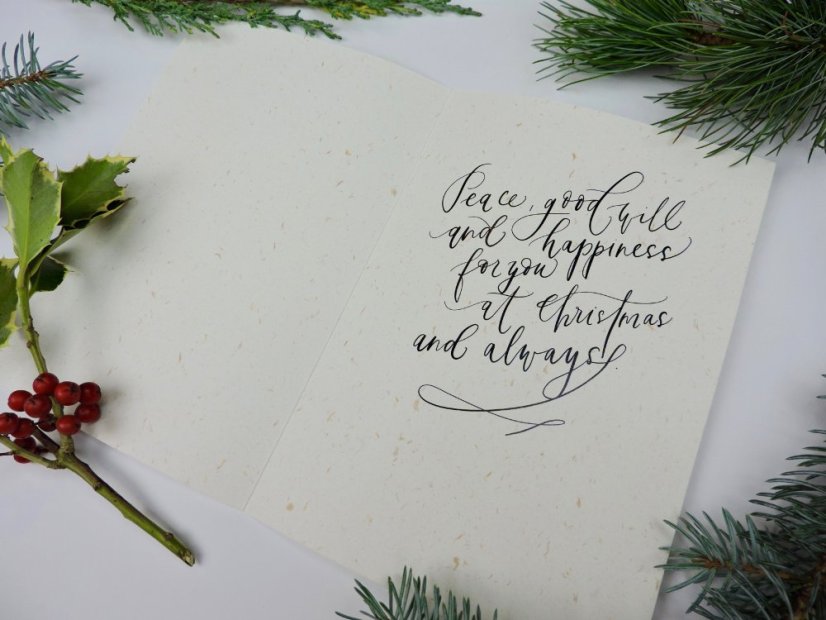 Peace, good will
and happiness
for you
at Christmas
and always.